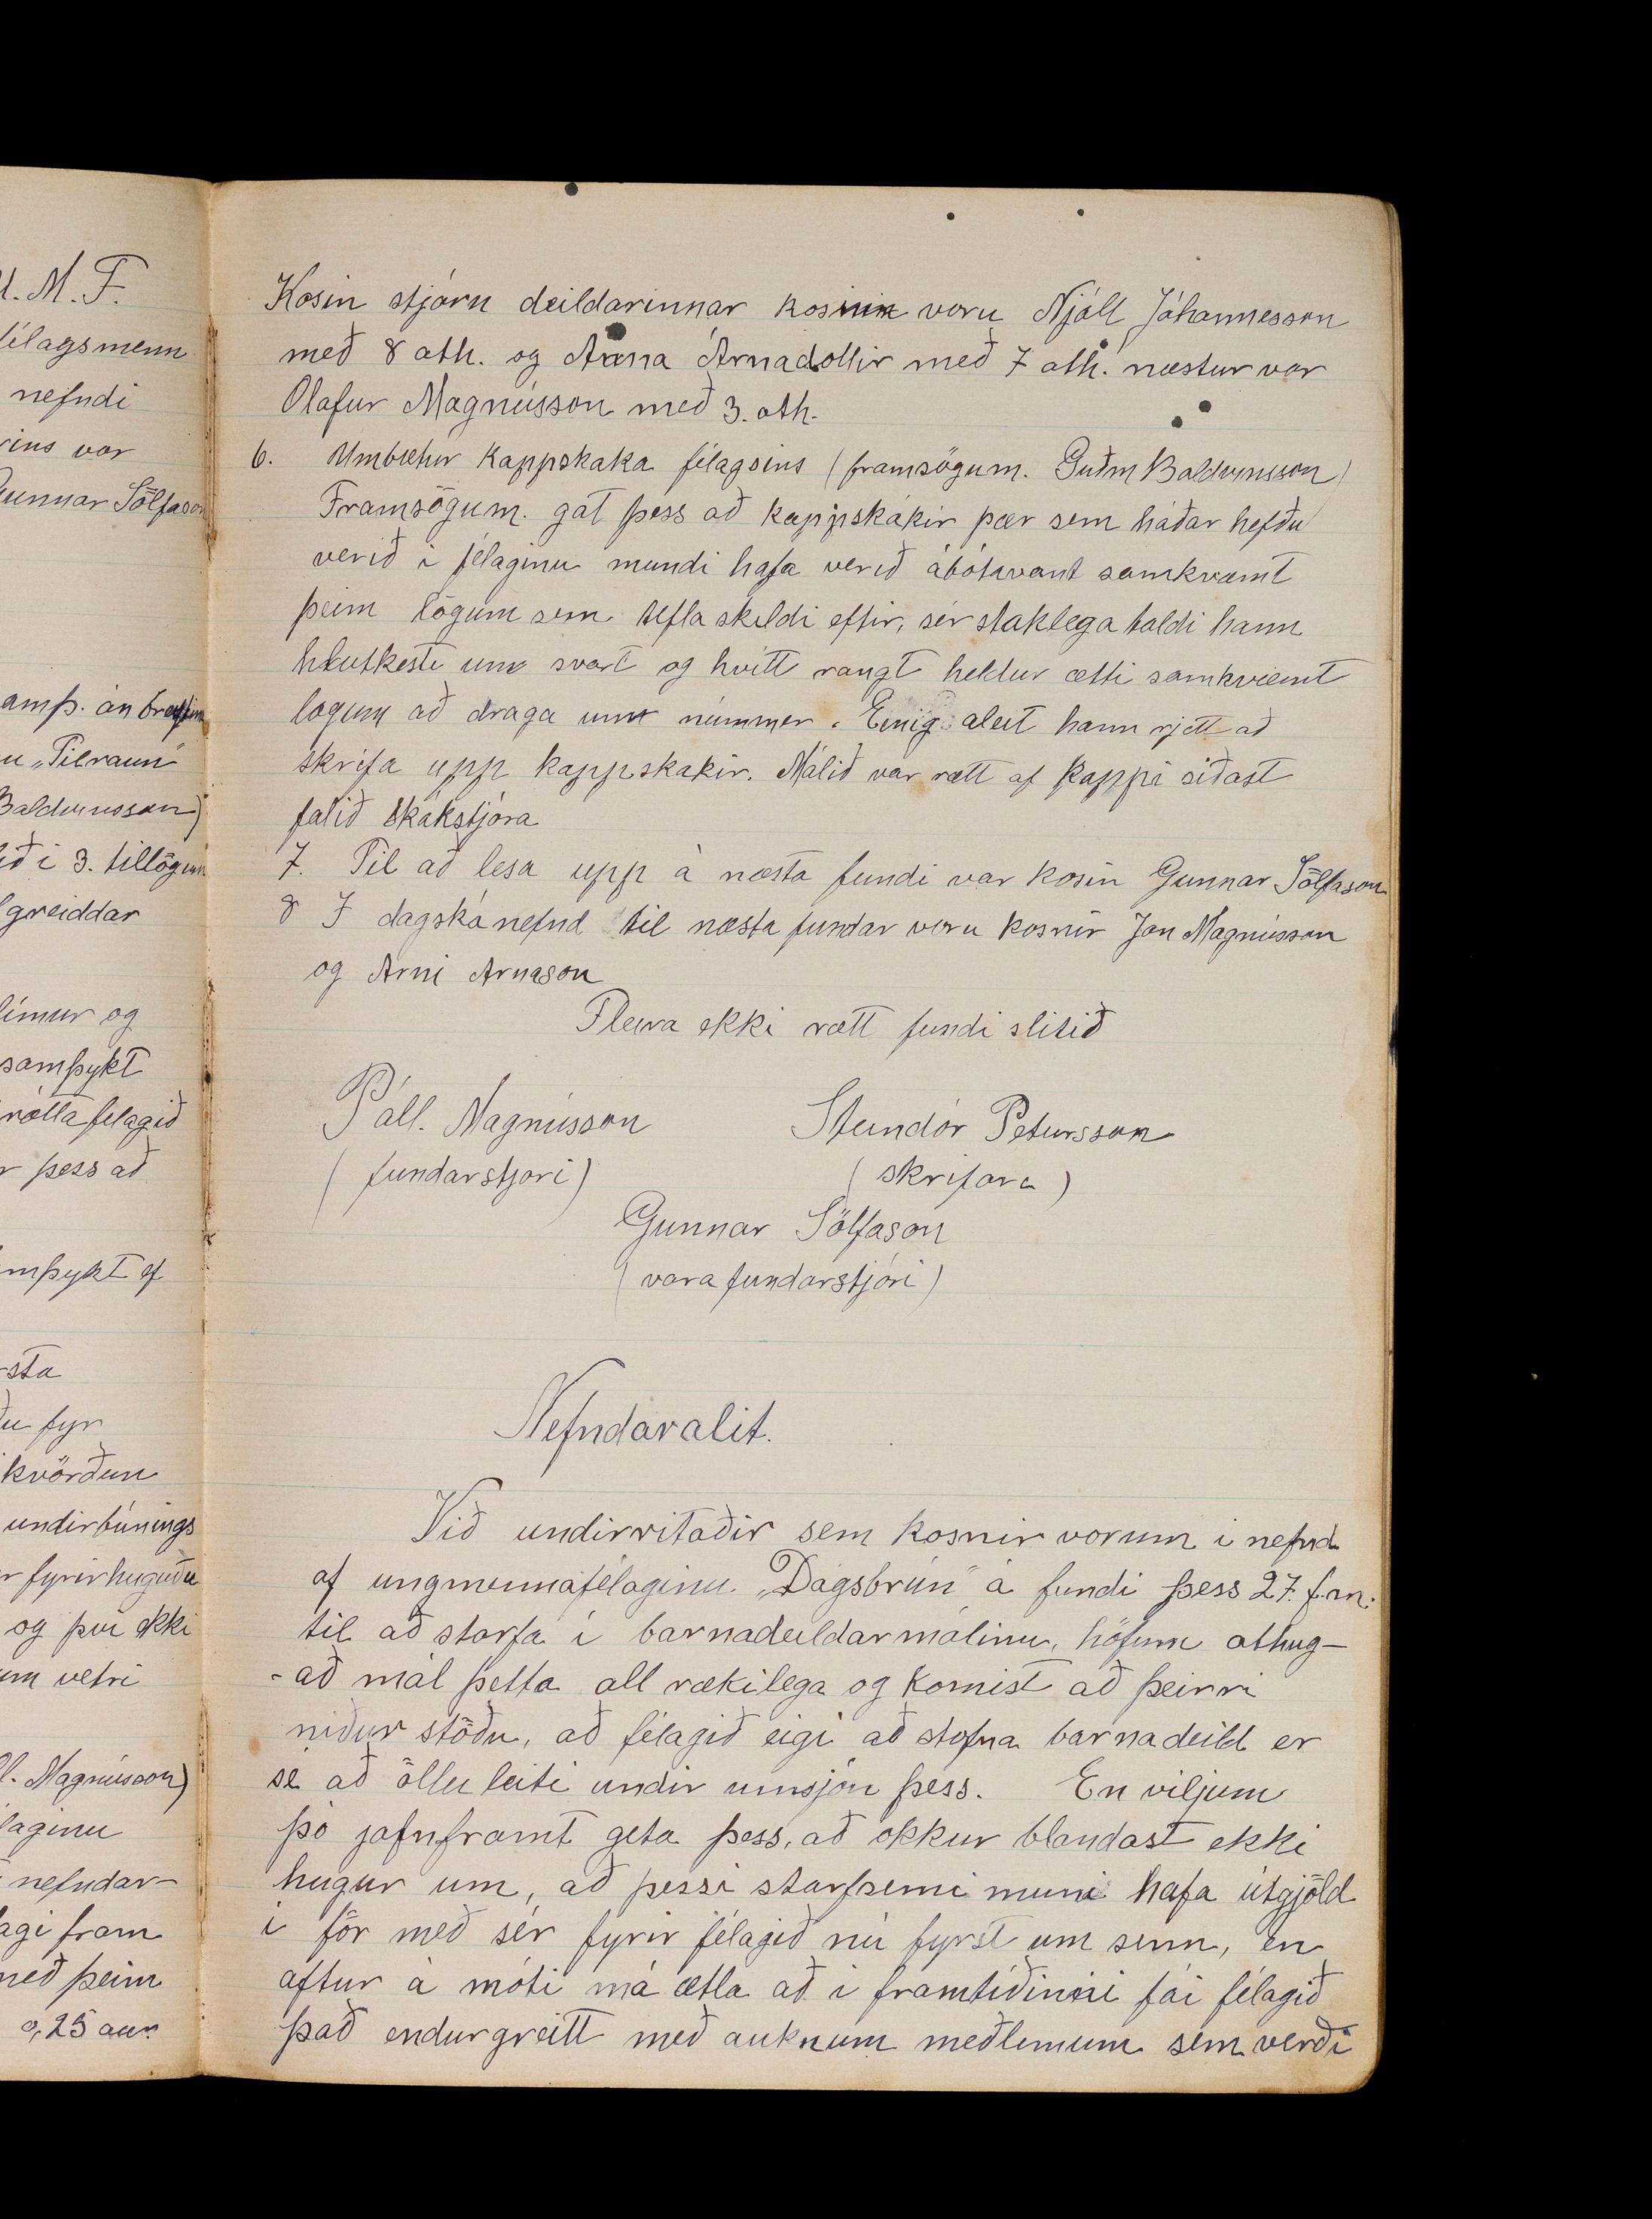 U. M. F.
félagsmenn
nefndi
rins var
Gunnar Sölfason
amþ. án breytin
u „Tilraun"
Baldvinsson)
ið í 3. tillögum
greiddar
límur og
samþykt
rótta félagið
r þess að
mþykt ef
rsta
ðu fyr
kvörðun
undirbúnings
r fyrirhuguðu
og því ekki
um vetri
ll. Magnússon)
laginu
nefndar-
lagi fram
með þeim
0,25 aur.
Kosin stjórn deildarinnar kosnin voru Njáll Jóhannesson
með 8 ath. og Anna Árnadóttir með 7 ath. næstur var
Olafur Magnússon með 3. ath.
6. Umbætur kappskaka félagsins (framsögum. Guðm Baldvinsson)
Framsögum. gat þess að kappskákir þær sem háðar hefðu
verið i félaginu mundi hafa verið ábótavant samkvæmt
þeim lögum sem tefla skildi eftir, sérstaklega taldi hann
hlutkesti um svart og hvítt rangt heldur ætti samkvæmt
logum að draga um númmer. Einig aleit hann rjett að
skrifa upp kappskakir. Málið var rætt af kappi siðast
falið skákstjóra
7. Til að lesa upp á næsta fundi var kosin Gunnar Sölfason
8 I dagskánefnd til næsta fundar voru kosnir Jon Magnússon
og Arni Arnason
Fleira ekki rætt fundi slitið
Páll. Magnússon Steindór Petursson
(fundarstjori) (skrifara)
Gunnar Sölfason
(vara fundarstjóri)
Nefndaralit.
Við undirritaðir sem kosnir vorum i nefnd
af ungmennafélaginu „Dagsbrún" á fundi þess 27. f.m.
til að starfa í barnadeildarmálinu, höfum athug-
-að mál þetta all rækilega og komist að þeirri
niður stöðu, að félagið eigi að stofna barnadeild er
sé að öllu leiti undir umsjón þess. En viljum
þó jafnframt geta þess, að okkur blandast ekki
hugur um, að þessi starfsemi muni hafa útgjöld
i för með sér fyrir félagið nú fyrst um sinn, en
aftur á móti má ætla að i framtíðinni fái félagið
það endurgreitt með auknum meðlimum sem verði